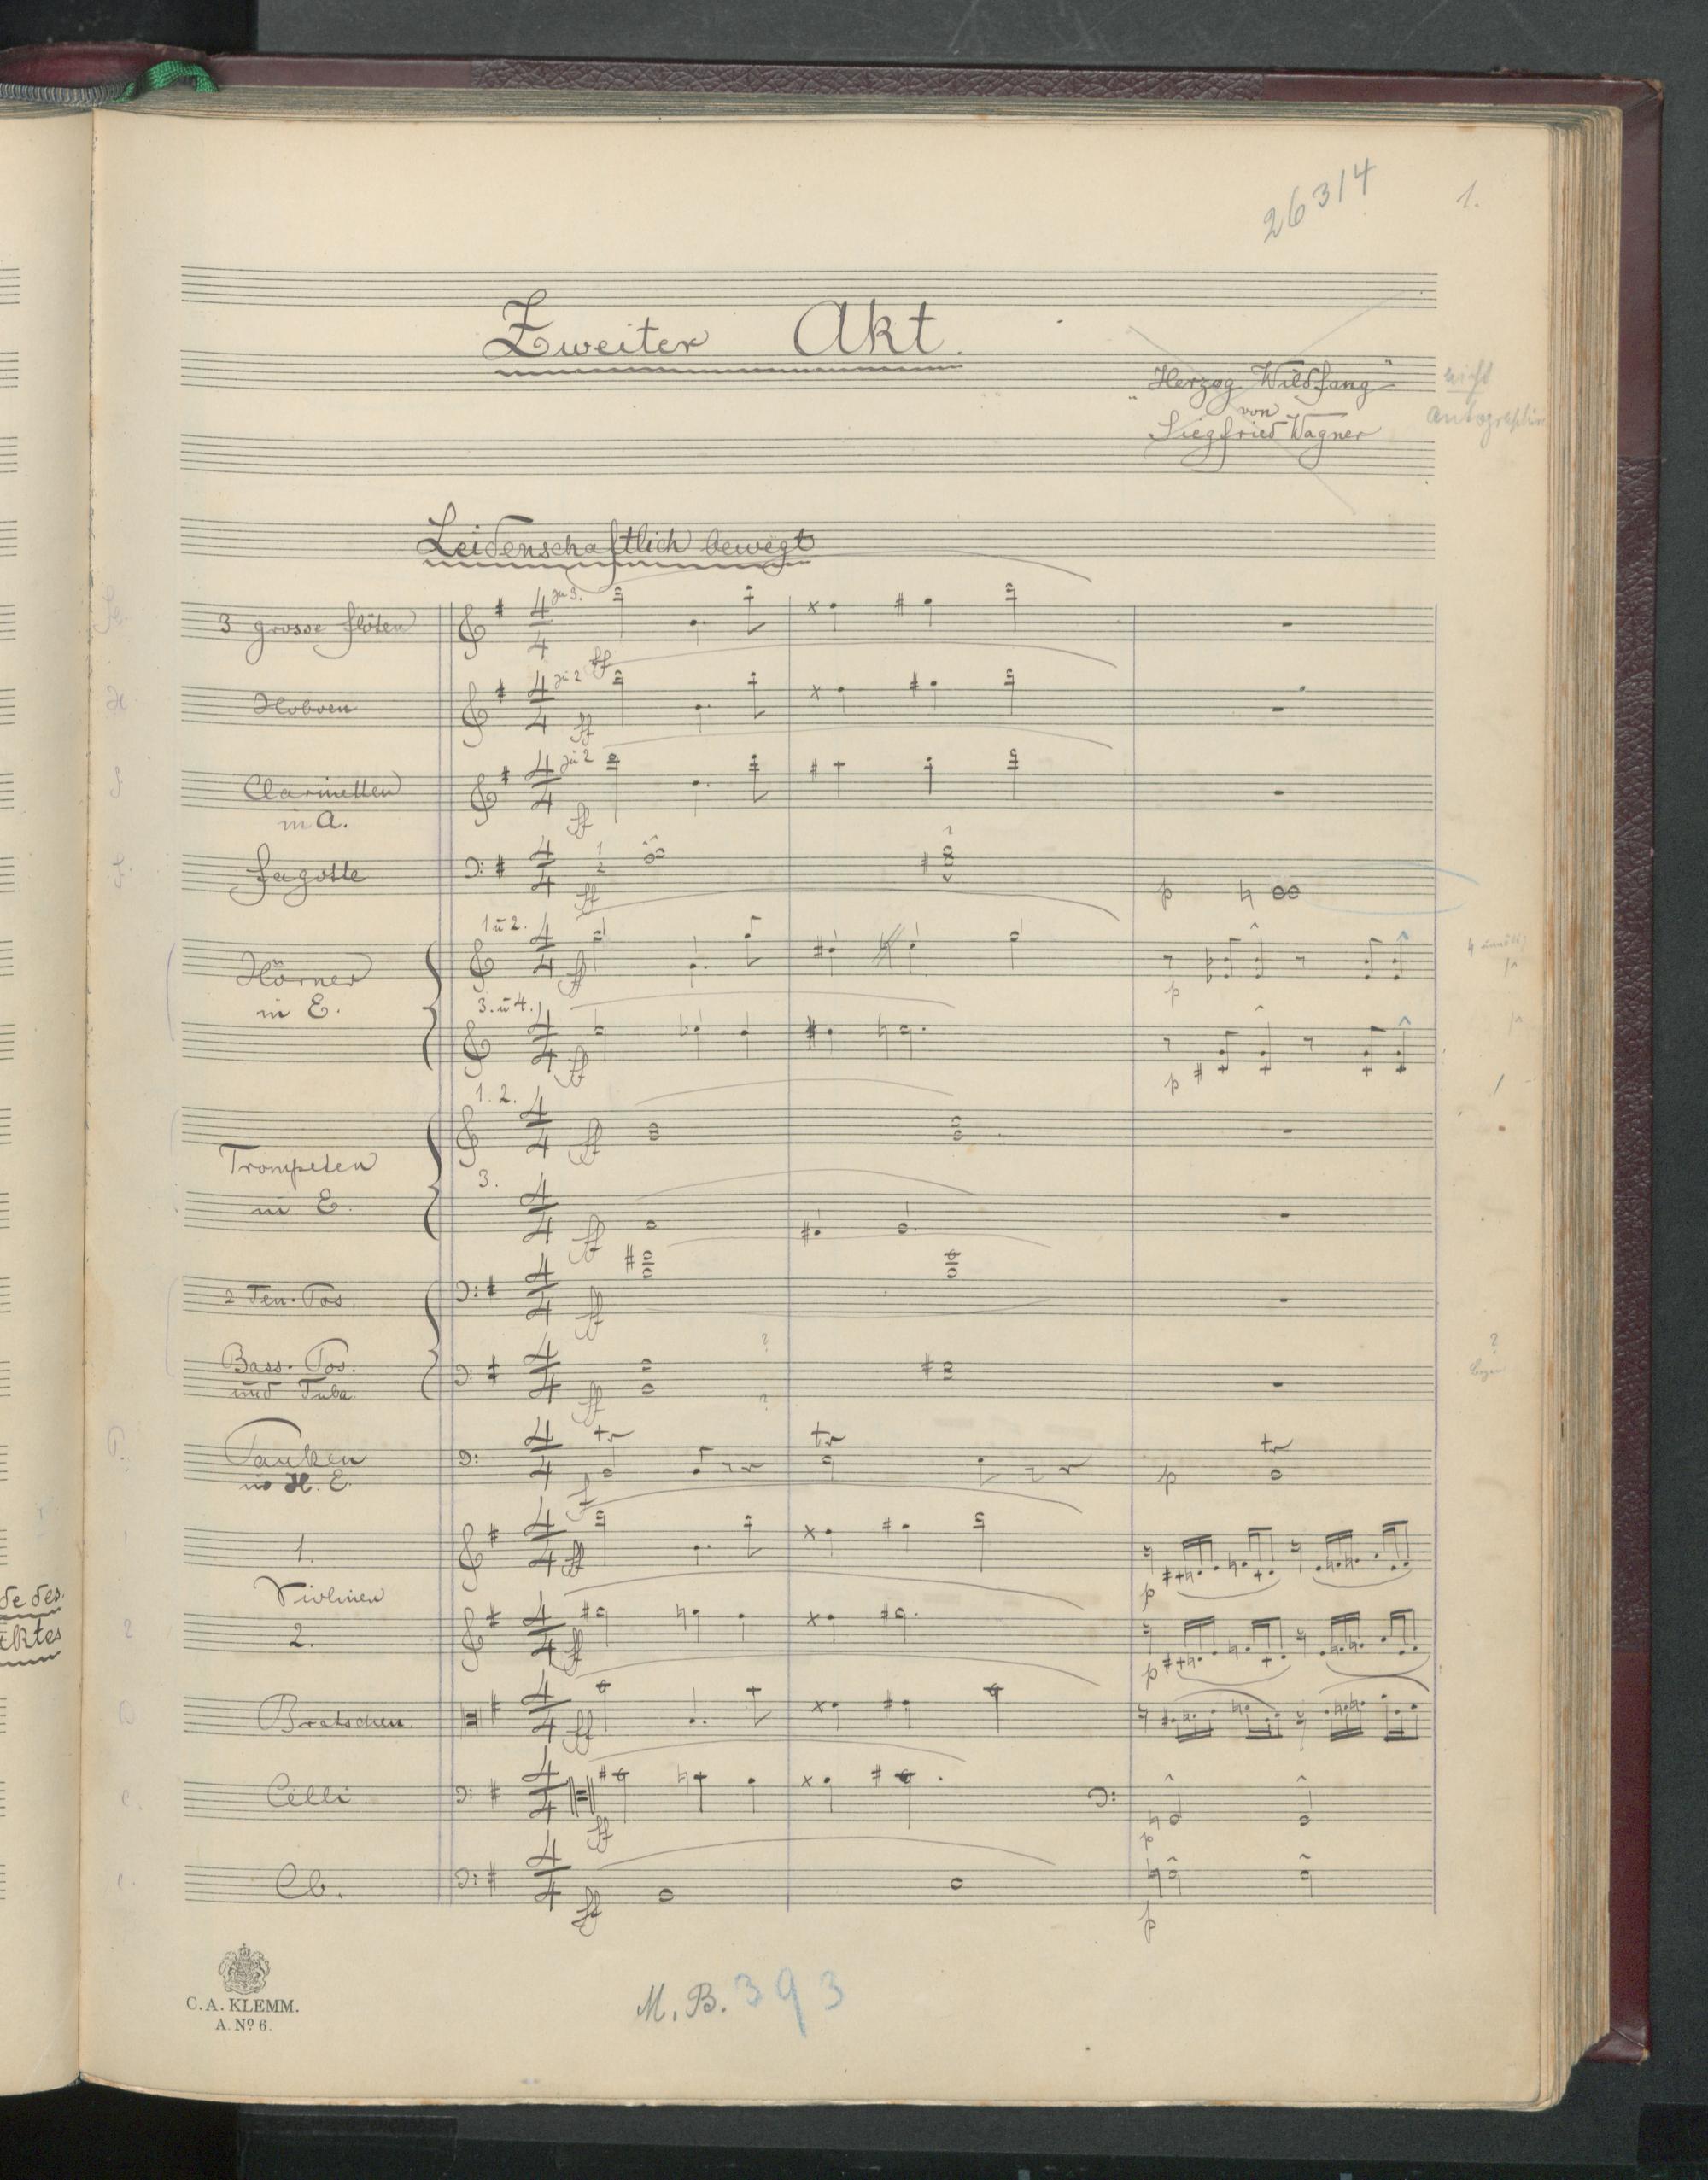 26314
1.
Zweiter Akt.
"Herzog Wildfang"
von
Siegfried Wagner
nicht
Leidenschaftlich bewegt
3 grosse Flöten
zu 3.
ff
Hoboen
zu 2
ff
Clarinetten
in A.
zu 2
ff
Fagotte
1
2
ff
p
Hörner
in E.
1 u 2.
ff
p
3. u 4.
ff
p
Trompeten
in E.
1. 2.
ff
3.
ff
2 Ten. Pos.
ff
Bass. Pos.
und Tuba
ff
?
?
?
Pauken
in H. E.
f
tr
tr
p
tr
1.
ff
p
Violinen
2.
ff
p
de des
ktes
Bratschen.
ff
Celli
ff
p
Cb.
ff
p
C. A. KLEMM.
A. Nº 6.
M. B. 393